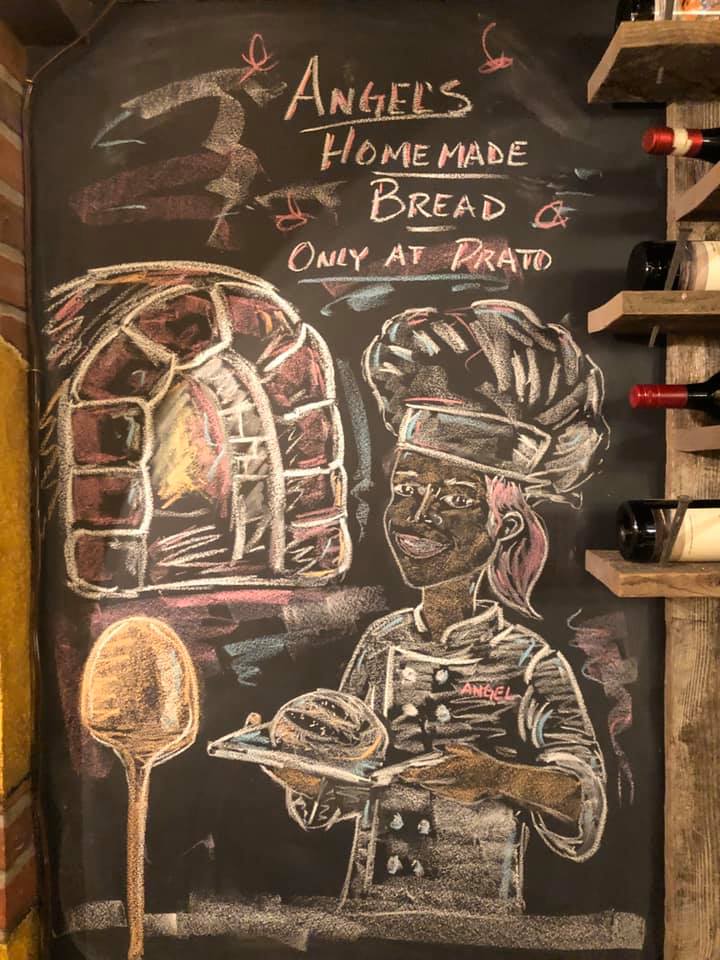 ANGEL'S
HOMEMADE
BREAD
ONLY AT PRATO
ANGEL